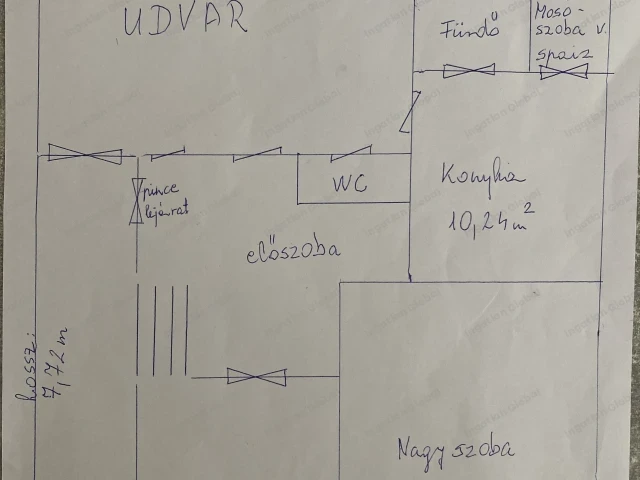 UDVAR
Fürdő
Moso-
szoba v.
spaiz
pince
lejárat
WC
Konyha
10,24 m²
előszoba
hossz:
7,72 m
Nagy szoba